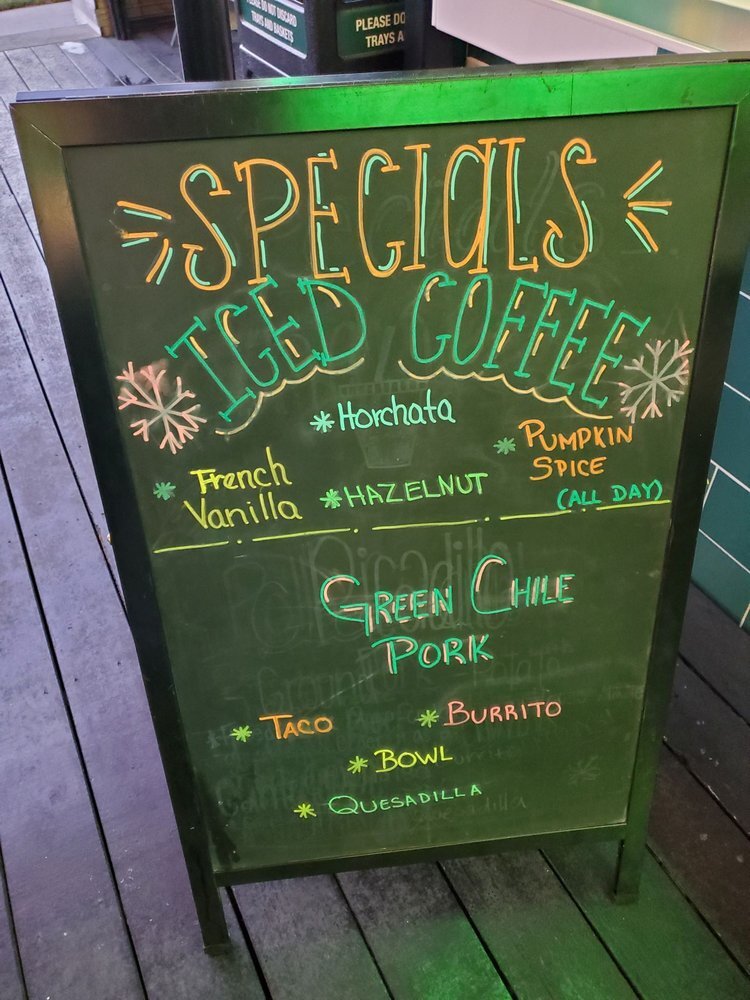 PLEASE DO NOT DISCARD
TRAYS AND BASKETS
PLEASE DO
TRAYS A
SPECIALS
ICED COFFEE
Horchata
French
Vanilla
HAZELNUT
PUMPKIN
SPICE
(ALL DAY)
Picadillo
GREEN CHILE
PORK
TACO
BURRITO
BOWL
QUESADILLA